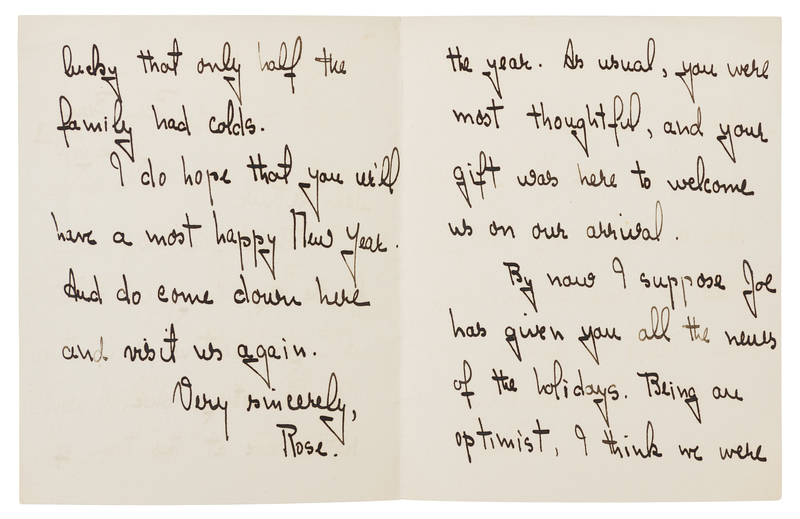 lucky that only half the
family had colds.
I do hope that you will
have a most happy New Year.
And do come down here
and visit us again.
Very sincerely,
Rose.
the year. As usual, you were
most thoughtful, and your
gift was here to welcome
us on our arrival.
By now I suppose Joe
has given you all the news
of the holidays. Being an
optimist, I think we were